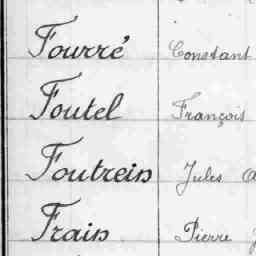 Fourré Constant
Foutel François
Foutrein Jules
Frain Pierre